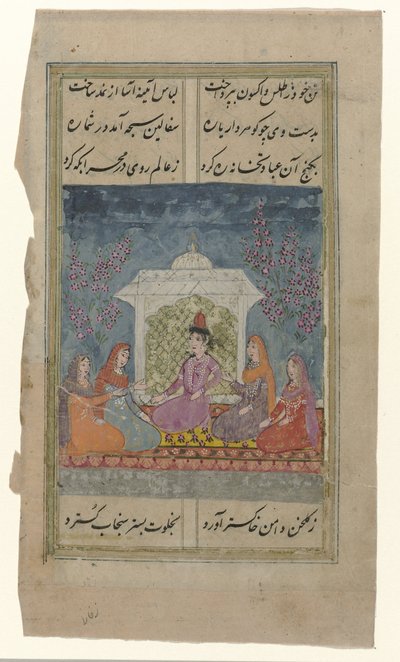 تن خود ز اطلس و اکسون بپرداخت لباس آینه آسا از نمد ساخت
بدست وی چو کوهردار یاره سفالین سبحه آمد در شماره
بکنج آن عبادتخانه ره کرد ز عالم روی در محرابکه کرد
ز کلخن دامن خاکستر آورد بخلوت بستر سنجاب کسترد